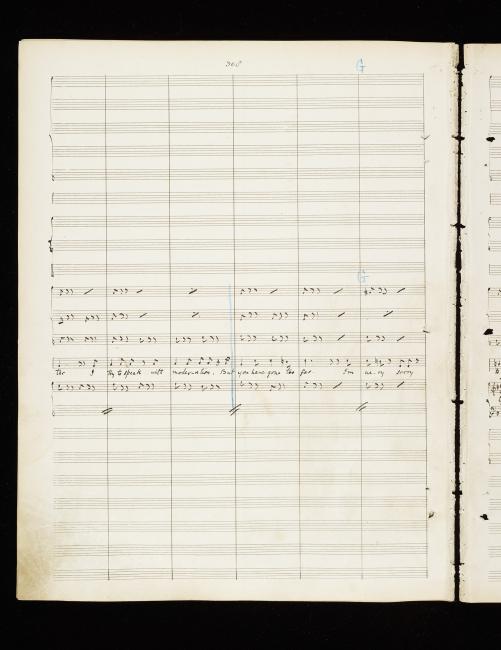 308
G
G
ther I try to speak with moderation. But you have gone too far I'm ve-ry sorry